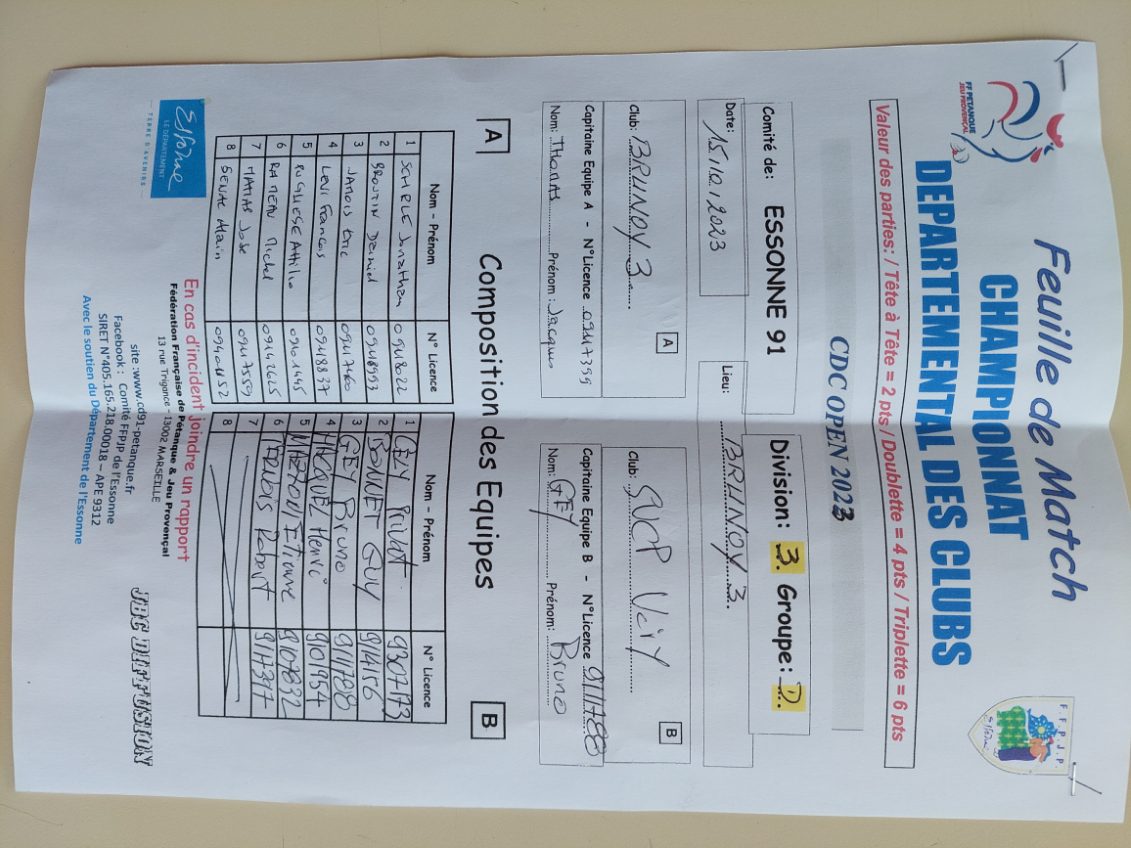 Feuille de Match
CHAMPIONNAT
DEPARTEMENTAL DES CLUBS
FF PETANQUE
JEU PROVENÇAL
F.F.P.J.P.
Essonne
Valeur des parties: / Tête à Tête = 2 pts / Doublette = 4 pts / Triplette = 6 pts
CDC OPEN 2023
Comité de: ESSONNE 91
Division: 3. Groupe: D.
Date: 15.10.2023
Lieu: BRUNOY 3.
Club: BRUNOY 3. A
Capitaine Equipe A - N°Licence 09117399
Nom: THOMAS Prénom: Jacques
Club: SUCP Viry B
Capitaine Equipe B - N°Licence 9111788
Nom: GEY Prénom: Bruno
A Composition des Equipes B
Nom - Prénom N° Licence
1 Jonathan 0918022
2 Daniel 0918993
3 Eric 09117460
4 LEVI Frances 09118837
5 PUGLIESE Attilio
6 RAMEAU Michel 09142625
7 MATIAS José 09117559
8 Alain
Nom - Prénom N° Licence
1 GELY Privat 9307173
2 BONNET Guy 9114156
3 GEY Bruno 9111788
4 Henri 9101954
5 Etienne 9107832
6 Robert 9117317
7
8
Essonne
LE DÉPARTEMENT
TERRE D'AVENIRS
En cas d'incident joindre un rapport
Fédération Française de Pétanque & Jeu Provençal
13 rue Trigance - 13002 MARSEILLE
site :www.cd91-petanque.fr
Facebook : Comité FFPJP de l'Essonne
SIRET N°405.165.218.00018 – APE 9312
Avec le soutien du Département de l'Essonne
JHC DIFFUSION